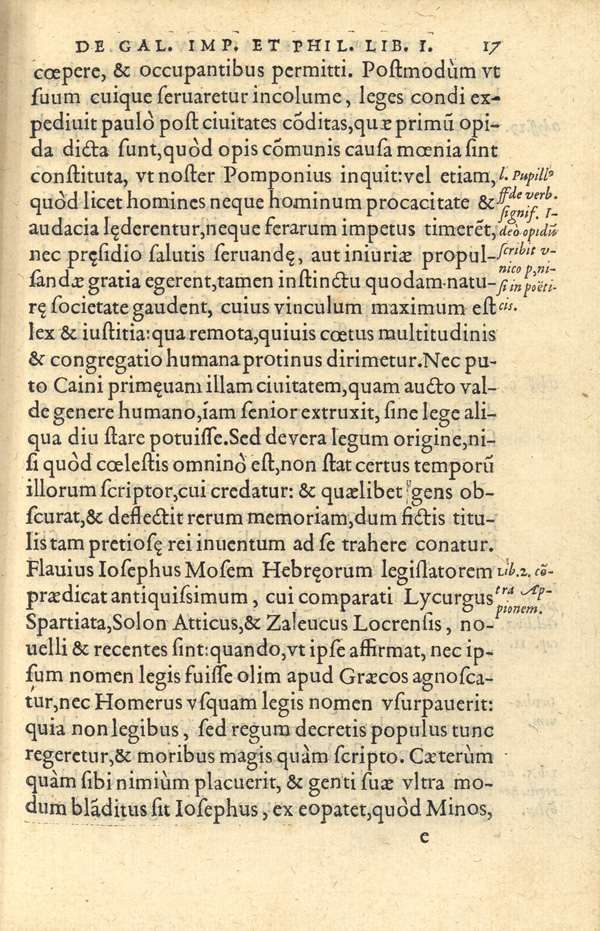 DE GAL. IMP. ET PHIL. LIB. I. 17
cœpere, & occupantibus permitti. Postmodùm vt
suum cuique seruaretur incolume, leges condi ex-
pediuit paulò post ciuitates cōditas, quæ primū opi-
da dicta sunt, quòd opis cōmunis causa mœnia sint
constituta, vt noster Pomponius inquit: vel etiam,
quòd licet homines neque hominum procacitate &
audacia lęderentur, neque ferarum impetus timerēt,
nec pręsidio salutis seruandę, aut iniuriæ propul-
sandæ gratia egerent, tamen instinctu quodam natu-
rę societate gaudent, cuius vinculum maximum est
lex & iustitia: qua remota, quiuis cœtus multitudinis
& congregatio humana protinus dirimetur. Nec pu-
to Caini primęuam illam ciuitatem, quam aucto val-
de genere humano, iam senior extruxit, sine lege ali-
qua diu stare potuisse. Sed de vera legum origine, ni-
si quòd cœlestis omninò est, non stat certus temporū
illorum scriptor, cui credatur: & quælibet gens ob-
scurat, & deflectit rerum memoriam, dum fictis titu-
lis tam pretiosę rei inuentum ad se trahere conatur.
Flauius Iosephus Mosem Hebręorum legislatorem
prædicat antiquissimum, cui comparati Lycurgus
Spartiata, Solon Atticus, & Zaleucus Locrensis, no-
uelli & recentes sint: quando, vt ipse affirmat, nec ip-
sum nomen legis fuisse olim apud Græcos agnosca-
tur, nec Homerus vsquam legis nomen vsurpauerit:
quia non legibus, sed regum decretis populus tunc
regeretur, & moribus magis quàm scripto. Cæterùm
quàm sibi nimiùm placuerit, & genti suæ vltra mo-
dum blāditus sit Iosephus, ex eo patet, quòd Minos,
c
l. Pupillꝰ
ff de verb.
signif. I-
deo opidū
scribit v-
nico p, ni-
si in poëti-
cis.
Lib. 2. cō-
tra Ap-
pionem.